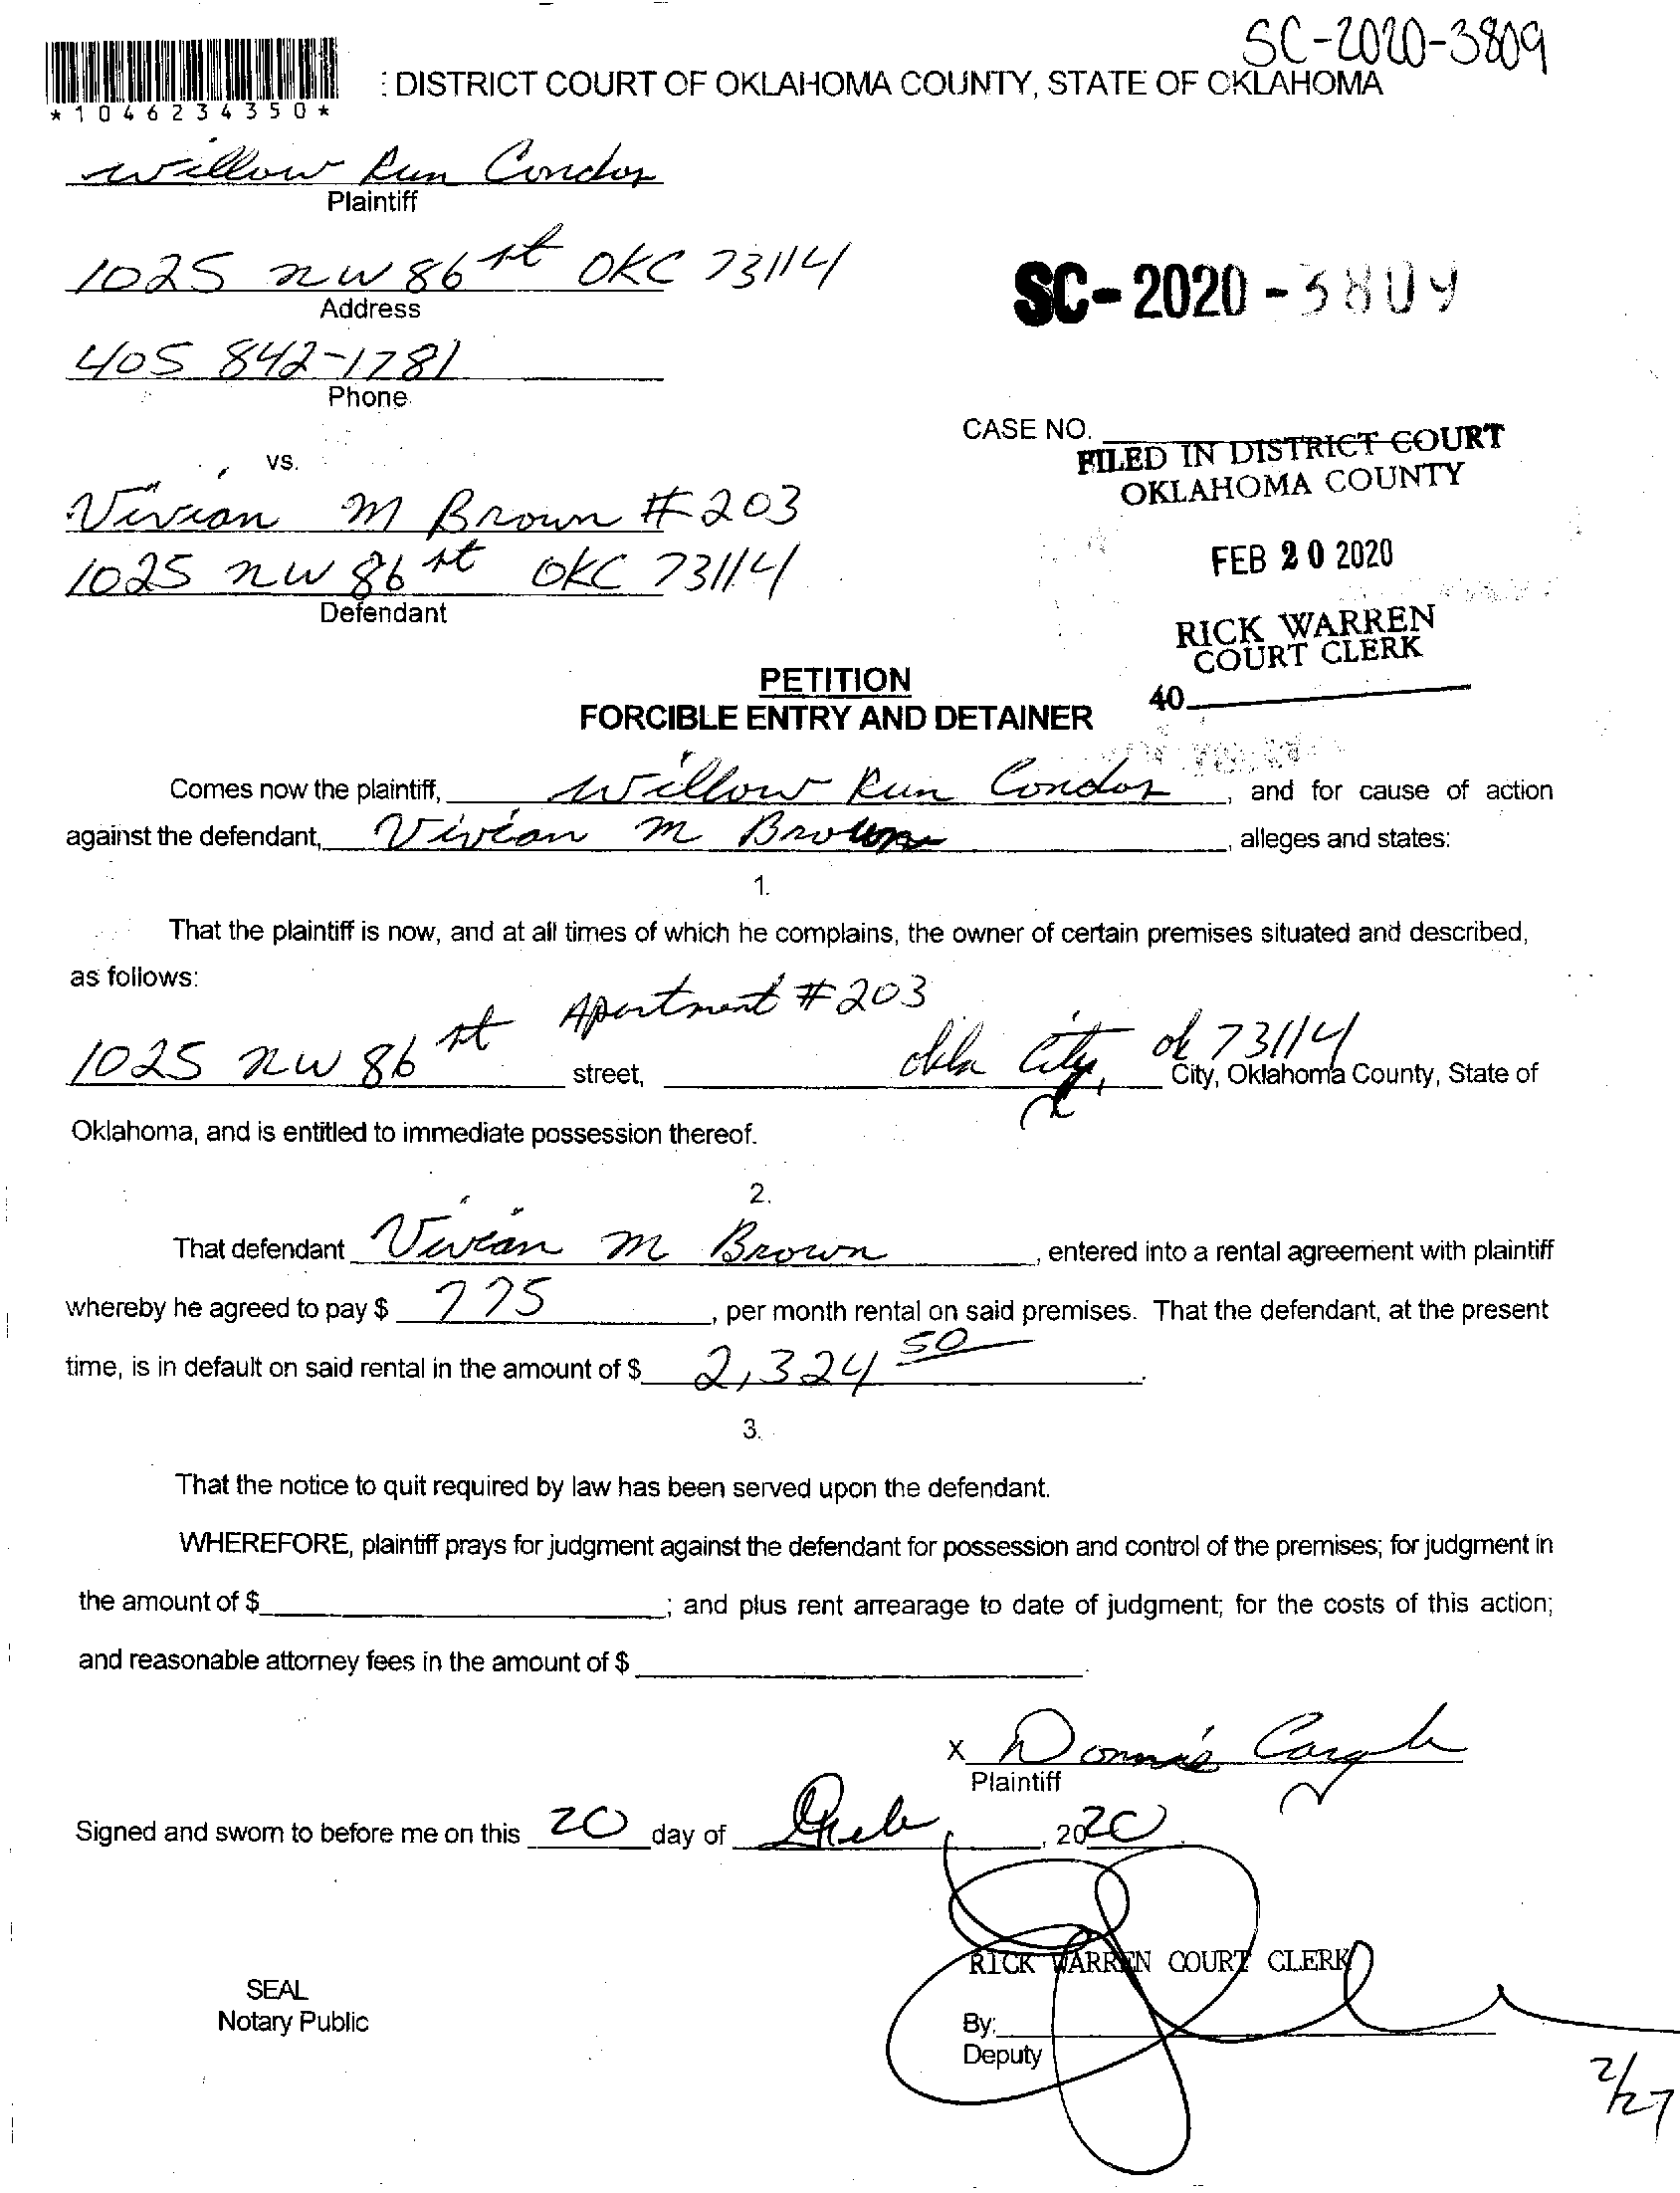 SC-2020-3809
: DISTRICT COURT OF OKLAHOMA COUNTY, STATE OF OKLAHOMA
*1046234350*
Willow Run Condos
Plaintiff
1025 NW 86 st OKC 73114
Address
SC-2020-3809
405 842-1781
Phone
CASE NO.
FILED IN DISTRICT COURT
OKLAHOMA COUNTY
vs.
Vivian M Brown #203
1025 NW 86 st OKC 73114
Defendant
FEB 20 2020
RICK WARREN
COURT CLERK
40
PETITION
FORCIBLE ENTRY AND DETAINER
Comes now the plaintiff, Willow Run Condos, and for cause of action
against the defendant, Vivian M Brown, alleges and states:
1.
That the plaintiff is now, and at all times of which he complains, the owner of certain premises situated and described,
as follows:
Apartment #203
1025 NW 86 st street, okla City, ok 73114 City, Oklahoma County, State of
Oklahoma, and is entitled to immediate possession thereof.
2.
That defendant Vivian M Brown, entered into a rental agreement with plaintiff
whereby he agreed to pay $ 775, per month rental on said premises. That the defendant, at the present
time, is in default on said rental in the amount of $ 2,324 50.
3.
That the notice to quit required by law has been served upon the defendant.
WHEREFORE, plaintiff prays for judgment against the defendant for possession and control of the premises; for judgment in
the amount of $ ; and plus rent arrearage to date of judgment; for the costs of this action;
and reasonable attorney fees in the amount of $ .
X Donnie
Plaintiff
Signed and sworn to before me on this 20 day of Feb, 2020.
RICK WARREN COURT CLERK
SEAL
Notary Public
By:
Deputy
2/27